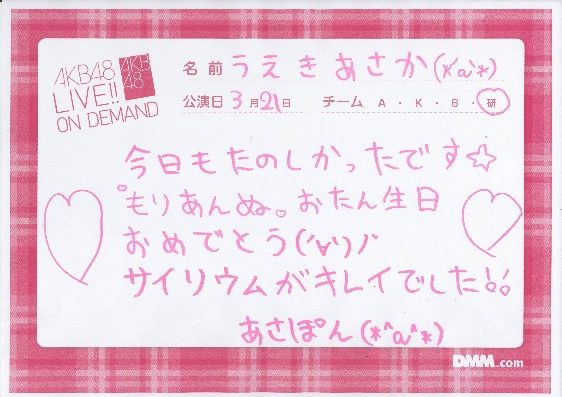 AKB48
LIVE!!
ON DEMAND
AKB
48
名前 うえきあさか(*´a`*)
公演日 3月21日 チーム A・K・B・研
今日もたのしかったです☆
°もりあんぬ。おたん生日
おめでとう('∀')ﾉ
サイリウムがキレイでした!!
あさぽん(*^a^*)
DMM.com